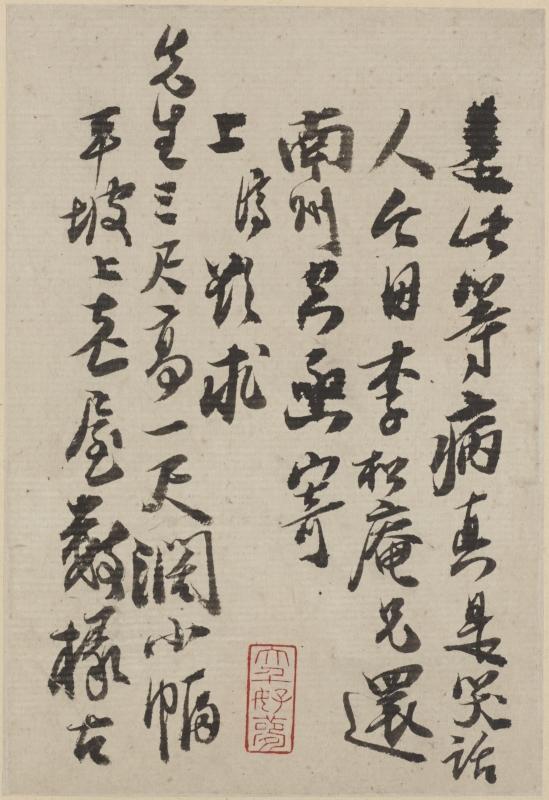 此等病真是笑話
人今因李松庵兄還
南州空函寄
上濟欲求
先生三尺高一尺闊小幅
平坡上老屋數椽古
大千好夢